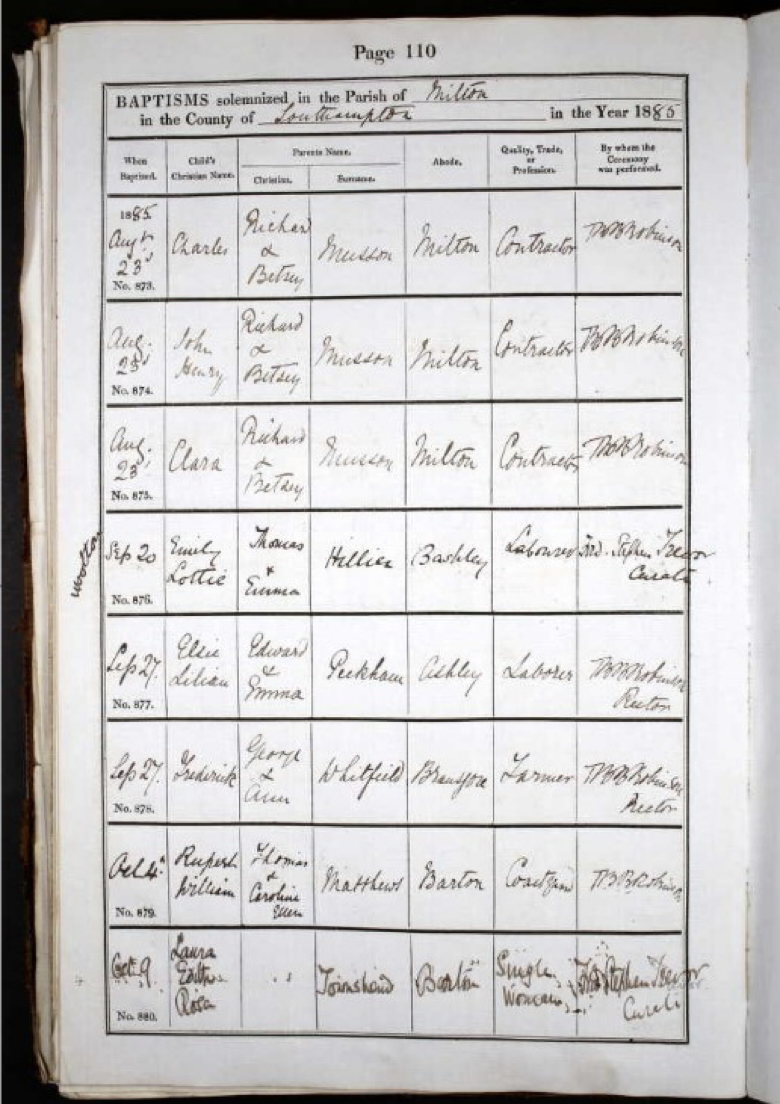 Page 110
BAPTISMS solemnized in the Parish of Milton
in the County of Southampton in the Year 1885
When Baptized. Child's Christian Name. Parents Name. Christian. Surname. Abode. Quality, Trade, or Profession. By whom the Ceremony was performed.
1885. Augt 23d No. 873. Charles Richard & Betsey Musson Milton Contractor Robinson
Aug. 23d No. 874. John Henry Richard & Betsey Musson Milton Contractor Robinson
Aug. 23d No. 875. Clara Richard & Betsey Musson Milton Contractor Robinson
Sep 20 No. 876. Emily Lottie Thomas & Emma Hillier Bashley Labourer Stephen Trevor Curate
Sep 27. No. 877. Elsie Lilian Edward & Emma Peckham Ashley Laborer Robinson Rector
Sep 27. No. 878. Frederick George & Ann Whitfield Farmer Robinson Rector
Oct 4th No. 879. Rupert William Thomas & Caroline Ellen Matthews Barton Robinson
Oct 9 No. 880. Laura Edith Rosa Townshend Barton Single Woman Stephen Trevor Curate